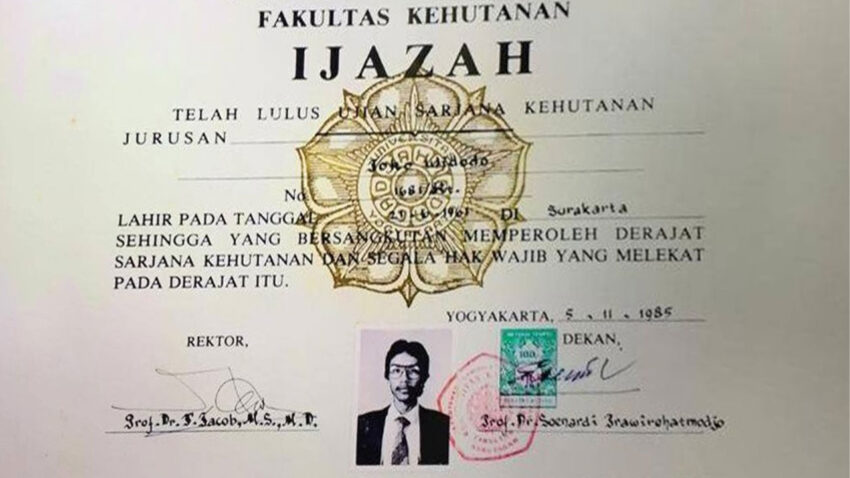 FAKULTAS KEHUTANAN
IJAZAH
TELAH LULUS UJIAN SARJANA KEHUTANAN
JURUSAN
Joko Widodo
No 1681/
LAHIR PADA TANGGAL 1961 DI Surakarta
SEHINGGA YANG BERSANGKUTAN MEMPEROLEH DERAJAT
SARJANA KEHUTANAN DAN SEGALA HAK WAJIB YANG MELEKAT
PADA DERAJAT ITU.
YOGYAKARTA, 5 . 11 . 1985
REKTOR,
DEKAN,
100
Prof. Dr. T. Jacob, M.S., M.D.
Prof. Dr. Soenardi Prawirohatmodjo